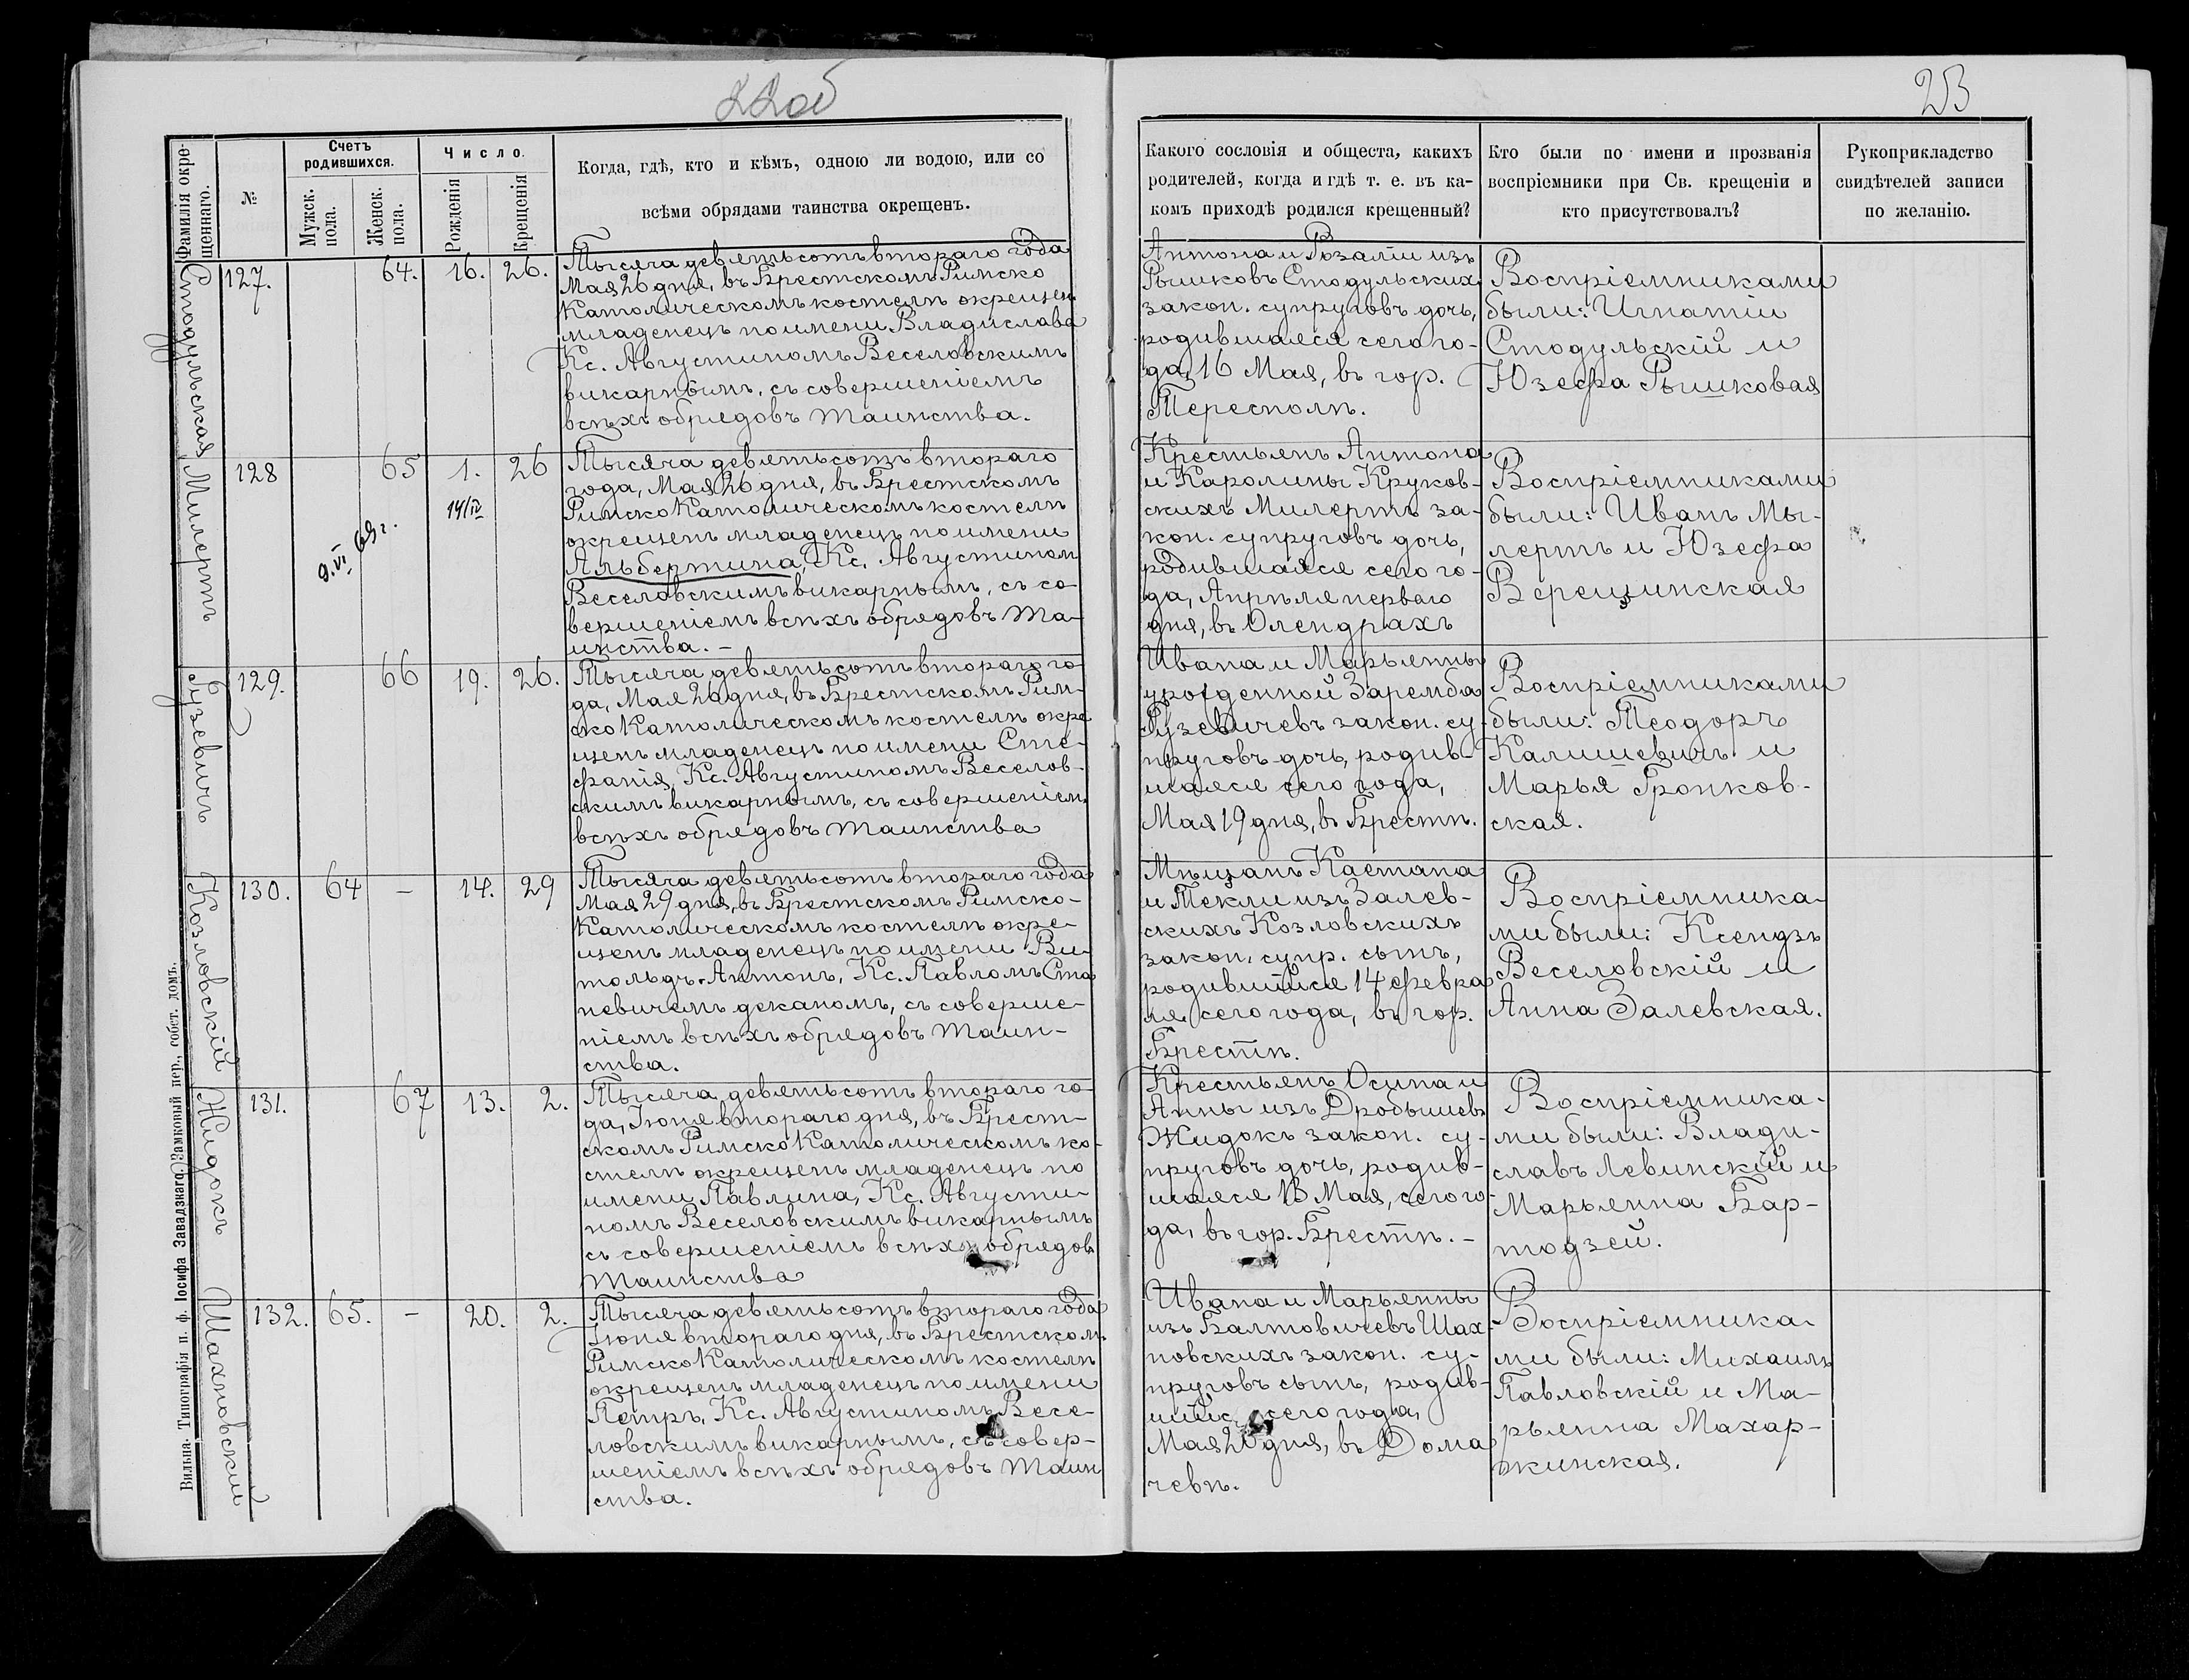 22об
23
Фамилія окре-
щеннаго.
№
Счетъ
родившихся.
Мужск.
пола.
Женск.
пола.
Число.
Рожденія
Крещенія
Когда, гдѣ, кто и кѣмъ, одною ли водою, или со
всѣми обрядами таинства окрещенъ.
Какого сословія и общеста, какихъ
родителей, когда и гдѣ т. е. въ ка-
комъ приходѣ родился крещенный?
Кто были по имени и прозванія
воспріемники при Св. крещеніи и
кто присутствовалъ?
Рукоприкладство
свидѣтелей записи
по желанію.
Стодульская
127.
64.
16.
26.
Тысяча девятьсотъ втораго года
Мая 26 дня, въ Брестскомъ Римско
Католическомъ костелѣ окрещен
младенецъ по имени Владислава
Кс. Августиномъ Веселовскимъ
викарнымъ, съ совершеніемъ
всѣхъ обрядовъ таинства.
Антона и Розаліи изъ
Рышковъ Стодульских
закон. супруговъ дочь,
родившаяся сего го-
да, 16 Мая, въ гор.
Тересполѣ.
Воспріемниками
были: Игнатій
Стодульскій и
Юзефа Рышковая
Милертъ
128
65
1.
26
14/IV
9.VI 69 г.
Тысяча девятьсотъ втораго
года, Мая 26 дня, въ Брестскомъ
Римско Католическомъ костелѣ
окрещенъ младенецъ по имени
Альбертина, Кс. Августином
Веселовскимъ викарнымъ, съ со-
вершеніемъ всѣхъ обрядовъ та-
инства. –
Крестьянъ Антона
и Каролины Круков-
скихъ Милертъ за-
кон. супруговъ дочь,
родившаяся сего го-
да, Апрѣля перваго
дня, въ Олендрахъ
Воспріемниками
были: Иванъ Мы-
лертъ и Юзефа
Верещинская
Гузевичъ
129.
66
19.
26.
Тысяча девятьсотъ втораго го-
да, Мая 26 дня, въ Брестскомъ Рим-
ско Католическомъ костелѣ окре
щенъ младенецъ по имени Сте-
фанія, Кс. Августиномъ Веселов-
скимъ викарнымъ, съ совершеніем
всѣхъ обрядовъ таинства
Ивана и Марьянны
урожденной Заремба
Гузевичевъ закон. су-
пруговъ дочь, родив-
шаяся сего года,
Мая 19 дня, въ Брестѣ.
Воспріемниками
были: Теодоръ
Калишевичъ и
Марья Гронков-
ская.
Козловскій
130.
64
–
14.
29
Тысяча девятьсотъ втораго года
Мая 29 дня, въ Брестскомъ Римско-
Католическомъ костелѣ окре-
щенъ младенецъ по имени Ви-
тольдъ-Антонъ, Кс. Павломъ Ста
невичемъ деканомъ, съ соверше-
ніемъ всѣхъ обрядовъ таин-
ства.
Мѣщанъ Каетана
и Текли изъ Залев-
скихъ Козловскихъ
закон. супр. сынъ,
родившійся 14 февра
ля сего года, въ гор.
Брестѣ.
Воспріемника-
ми были: Ксендзъ
Веселовскій и
Анна Залевская.
Жидокъ
131.
67
13.
2.
Тысяча девятьсотъ втораго го-
да, Іюня втораго дня, въ Брест-
скомъ Римско Католическомъ ко-
стелѣ окрещенъ младенецъ по
имени Павлина, Кс. Августи-
номъ Веселовскимъ викарнымъ
съ совершеніемъ всѣхъ обрядов
таинства
Крестьянъ Осипа и
Анны изъ Дробышевъ
Жидокъ закон. су-
пруговъ дочь, родив-
шаяся 13 Мая, сего го
да, въ гор. Брестѣ. –
Воспріемника-
ми были: Влади-
славъ Левинскій и
Марьянна Бар-
тодзей.
Шахновскій
132.
65.
–
20.
2.
Тысяча девятьсотъ втораго года
Іюня втораго дня, въ Брестском
Римско Католическомъ костелѣ
окрещенъ младенецъ по имени
Петръ, Кс. Августиномъ Весе-
ловскимъ викарнымъ, съ совер-
шеніемъ всѣхъ обрядовъ таин
ства.
Ивана и Марьянны
изъ Балтовичевъ Шах-
новскихъ закон. су-
пруговъ сынъ, родив-
сего года,
Мая 20 дня, въ Дома
чевѣ.
Воспріемника-
ми были: Михаилъ
Павловскій и Ма-
рьянна Махар-
жинская.
Вильна. Типографія п. ф. Іосифа Завадзкаго, Замковый пер., собст. домъ.